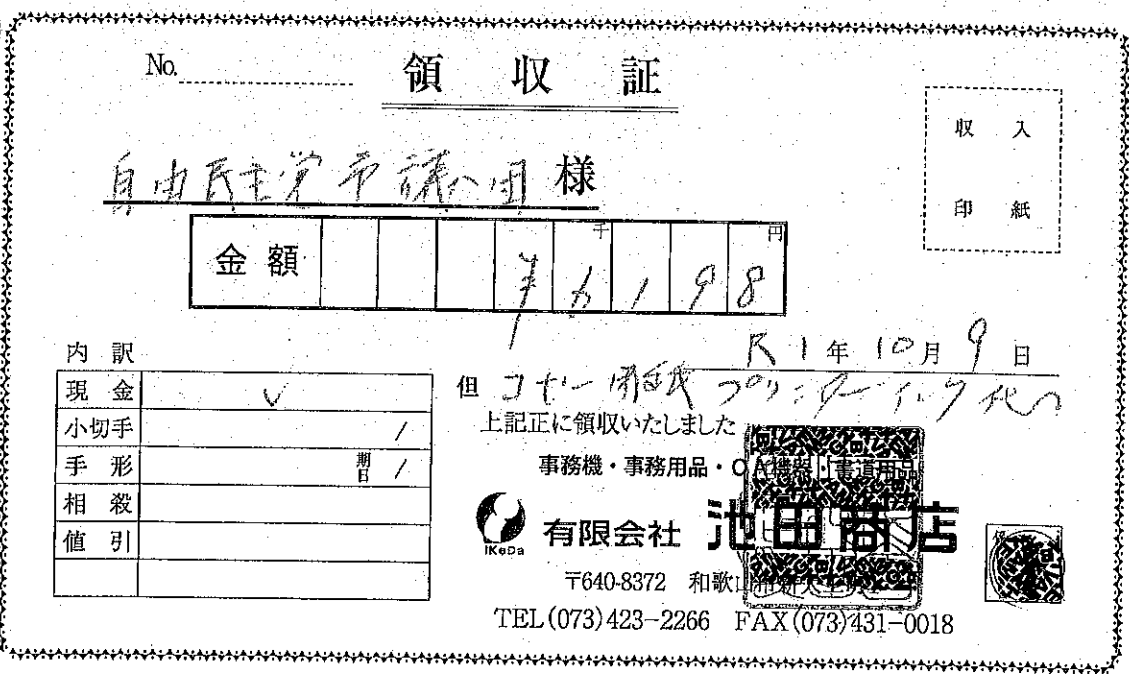 No.
領収証
収入
印紙
自由民主党市議団 様
金額 千 円
¥6198
R1年10月9日
内訳
現金 ✓
小切手 /
手形 期日 /
相殺
値引
但 コピー用紙 プリンターインク代
上記正に領収いたしました
事務機・事務用品・OA機器・書道用品
IKeDa
有限会社 池田商店
〒640-8372 和歌山市新大工町
TEL(073)423-2266 FAX(073)431-0018